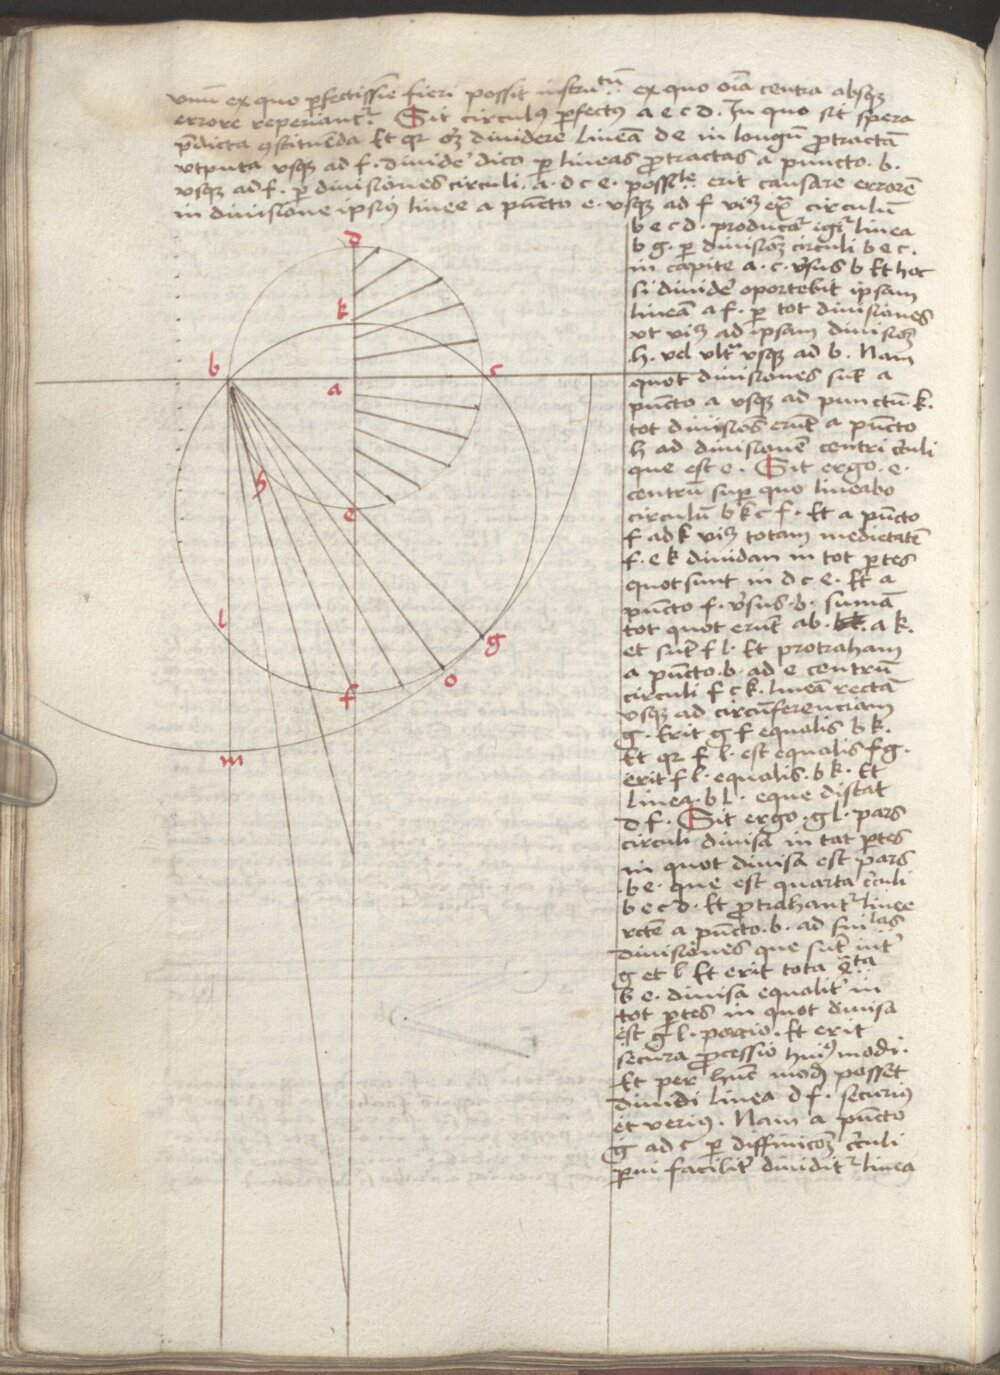 vnū ex quo ꝑfectissīe fieri possit instrūtū ex quo oīa centra absqꝫ
errore reperiantᷣ. Sit circulꝰ ꝑfectꝰ a e c d. In quo sit spera
p̄dicta ꝯstituenda Et qꝛ oꝫ diuidere lineā d e in longū ꝓtractā
vtputa vsqꝫ ad f. diuide᷑ dico ꝑ lineas ꝓtractas a puncto . b.
vsqꝫ ad f. ꝑ diuisiones circuli . a . d c e . possile erit causare errorē
in diuisione ipsiꝰ linee a pūcto e . vsqꝫ ad f viꝫ ex circulū
b e c d . producat᷑ igit᷑ linea
b g . ꝑ diuisiōꝫ circuli b e c .
in capite a . c . v̄sus b Et hoc
si diuide᷑ oportebit ipsam
lineam a f . ꝑ tot diuisiones
vt viꝫ ad ipsam diuisiōꝫ
h . vel vlt᷑ vsqꝫ ad b . Nam
quot diuisiones sūt a
pūcto a vsqꝫ ad punctū . k .
tot diuisiōēs erūt a pūcto
h ad diuisionē centri cͥculi
que est e . Sit ergo . e .
centrū suꝑ quo lineabo
circulū b k c f . Et a pūcto
f ad k viꝫ totam medietatē
f . e k diuidam in tot ꝑtes
quot sunt in d c e . Et a
pūcto f . v̄sus . b . sumā
tot quot erūt a b . a k .
et sūt f l . Et protraham
a pūcto . b . ad e centrū
circuli f c k . lineā rectā
vsqꝫ ad circūferenciam
g . Erit g f equalis b k .
Et qꝛ f l . est equalis f g .
erit f l . equalis . b k . Et
linea . b l . eque distat
d f . Sit ergo . g l . pars
circuli diuisa in tot ꝑtes
in quot diuisa est pars
b e . que est quarta cͥculi
b e c d . Et ꝓtrahantᷣ linee
rcte a pūcto . b . ad singlas
diuisiones que sūt int᷑
g et l Et erit tota qͣrta
b e . diuisa equalit᷑ in
tot ꝑtes in quot diuisa
est g l . porcio . Et erit
secura ꝓcessio huiꝰmodi .
Et per hūc modū posset
diuidi linea d f . securiꝰ
et veriꝰ . Nam a pūcto
g ad c ꝑ diffinicōꝫ cͥculi
ꝑui facilit᷑ diuiditᷣ linea
d
k
b
a
c
h
e
l
g
o
f
m